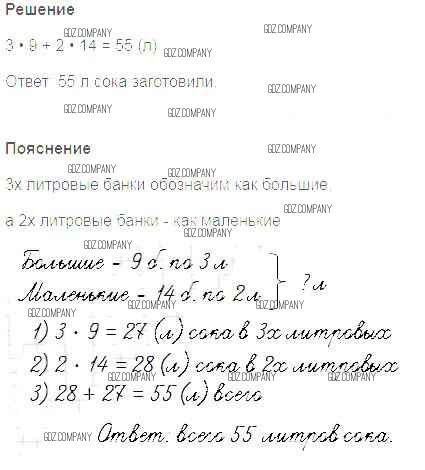 Решение
GDZ.COMPANY GDZ.COMPANY
3 • 9 + 2 • 14 = 55 (л)
GDZ.COMPANY
Ответ 55 л сока заготовили.
GDZ.COMPANY
GDZ.COMPANY GDZ.COMPANY
Пояснение GDZ.COMPANY
GDZ.COMPANY GDZ.COMPANY
3х литровые банки обозначим как большие,
GDZ.COMPANY GDZ.COMPANY
а 2х литровые банки - как маленькие
GDZ.COMPANY GDZ.COMPANY
Большие - 9 б. по 3 л
GDZ.COMPANY
Маленькие - 14 б. по 2 л } ? л
GDZ.COMPANY GDZ.COMPANY GDZ.COMPANY
1) 3 • 9 = 27 (л) сока в 3х литровых
2) 2 • 14 = 28 (л) сока в 2х литровых
GDZ.COMPANY GDZ.COMPANY GDZ.COMPANY
3) 28 + 27 = 55 (л) всего
GDZ.COMPANY Ответ: всего 55 литров сока.